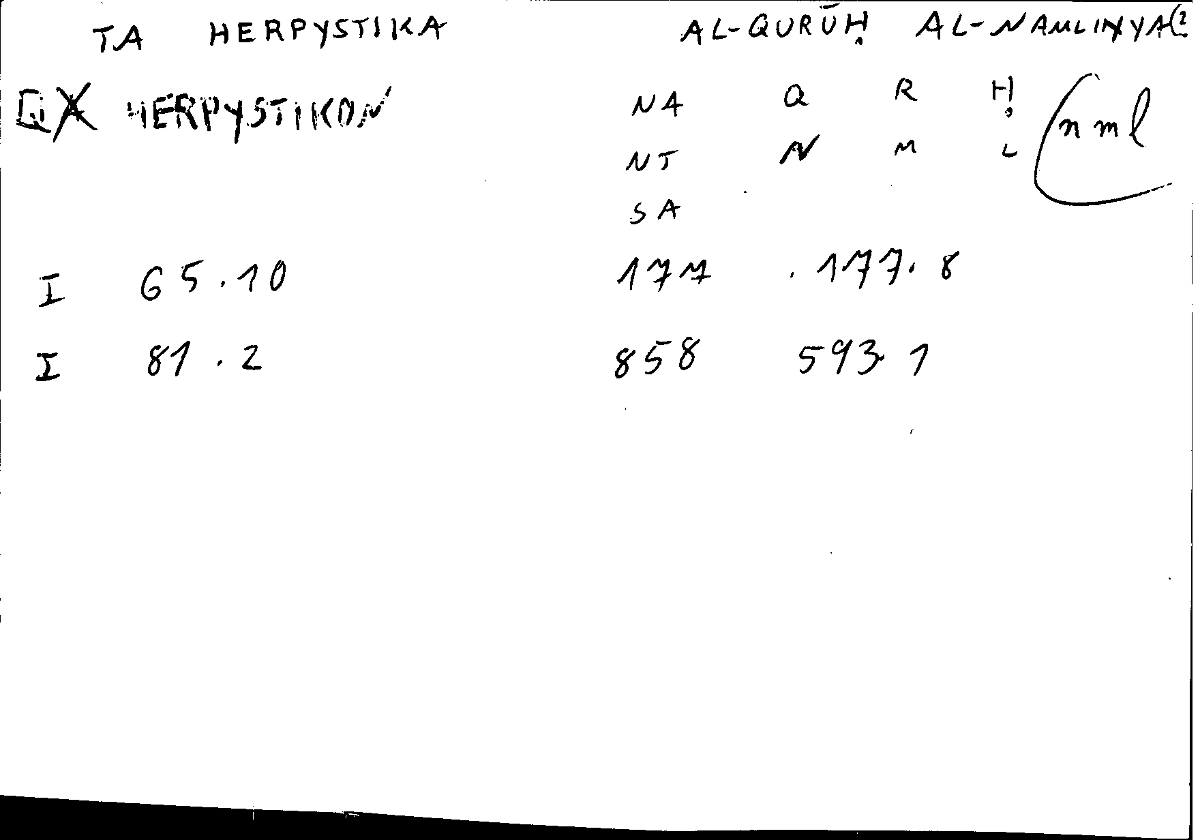 TA HERPYSTIKA AL-QURŪḤ AL-NAMLIYYA(?
HERPYSTIKON NA Q R Ḥ (nml
NT N M L
SA
I 65.10 177 .177.8
I 81.2 858 593.1